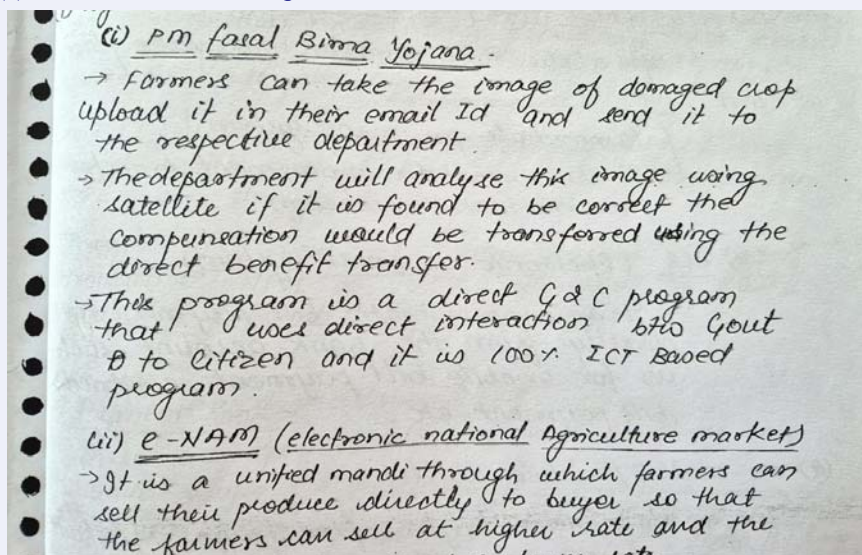 (i) PM fasal Bima Yojana.
→ Farmers can take the image of domaged crop
upload it in their email Id and send it to
the respective department.
→ The department will analyse this image using
satellite if it is found to be correct the
compensation would be transferred using the
direct benefit transfer.
→ This program is a direct G2C program
that uses direct interaction btw Govt
to Citizen and it is 100% ICT Based
program.
(ii) e-NAM (electronic national Agriculture market)
→ It is a unified mandi through which farmers can
sell their produce directly to buyer so that
the farmers can sell at higher rate and the